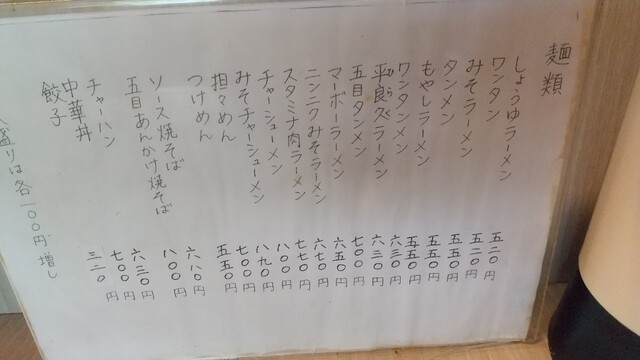 麺類
しょうゆラーメン 五二〇円
ワンタン 五二〇円
みそラーメン 五五〇円
タンメン 五五〇円
もやしラーメン 五五〇円
ワンタンメン 六三〇円
平良久ラーメン 六三〇円
五目タンメン 七〇〇円
マーボーラーメン 六五〇円
ニンニクみそラーメン 六七〇円
スタミナ肉ラーメン 七七〇円
チャーシューメン 八〇〇円
みそチャーシューメン 八九〇円
担々めん 七〇〇円
つけめん 五五〇円
ソース焼そば 六八〇円
五目あんかけ焼そば 八〇〇円
チャーハン 六三〇円
中華丼 七〇〇円
餃子 三二〇円
盛りは各一〇〇円増し